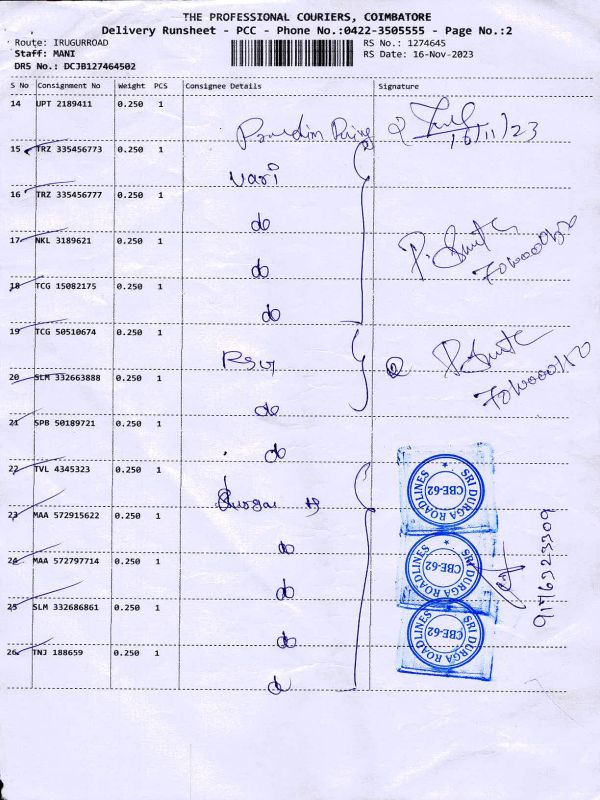 THE PROFESSIONAL COURIERS, COIMBATORE
Delivery Runsheet - PCC - Phone No.:0422-3505555 - Page No.:2
Route: IRUGURROAD
Staff: MANI
DRS No.: DCJB127464502
RS No.: 1274645
RS Date: 16-Nov-2023
S No Consignment No Weight PCS Consignee Details Signature
14 UPT 2189411 0.250 1
16/11/23
15 TRZ 335456773 0.250 1
Vari
16 TRZ 335456777 0.250 1
do
17 NKL 3189621 0.250 1
do
18 TCG 15082175 0.250 1
do
19 TCG 50510674 0.250 1
20 SLM 332663888 0.250 1
do
21 SPB 50189721 0.250 1
do
22 TVL 4345323 0.250 1
23 MAA 572915622 0.250 1
do
24 MAA 572797714 0.250 1
do
25 SLM 332686861 0.250 1
do
26 TNJ 188659 0.250 1
do
SRI DURGA ROADLINES
CBE-62
SRI DURGA ROADLINES
CBE-62
SRI DURGA ROADLINES
CBE-62
9176323309